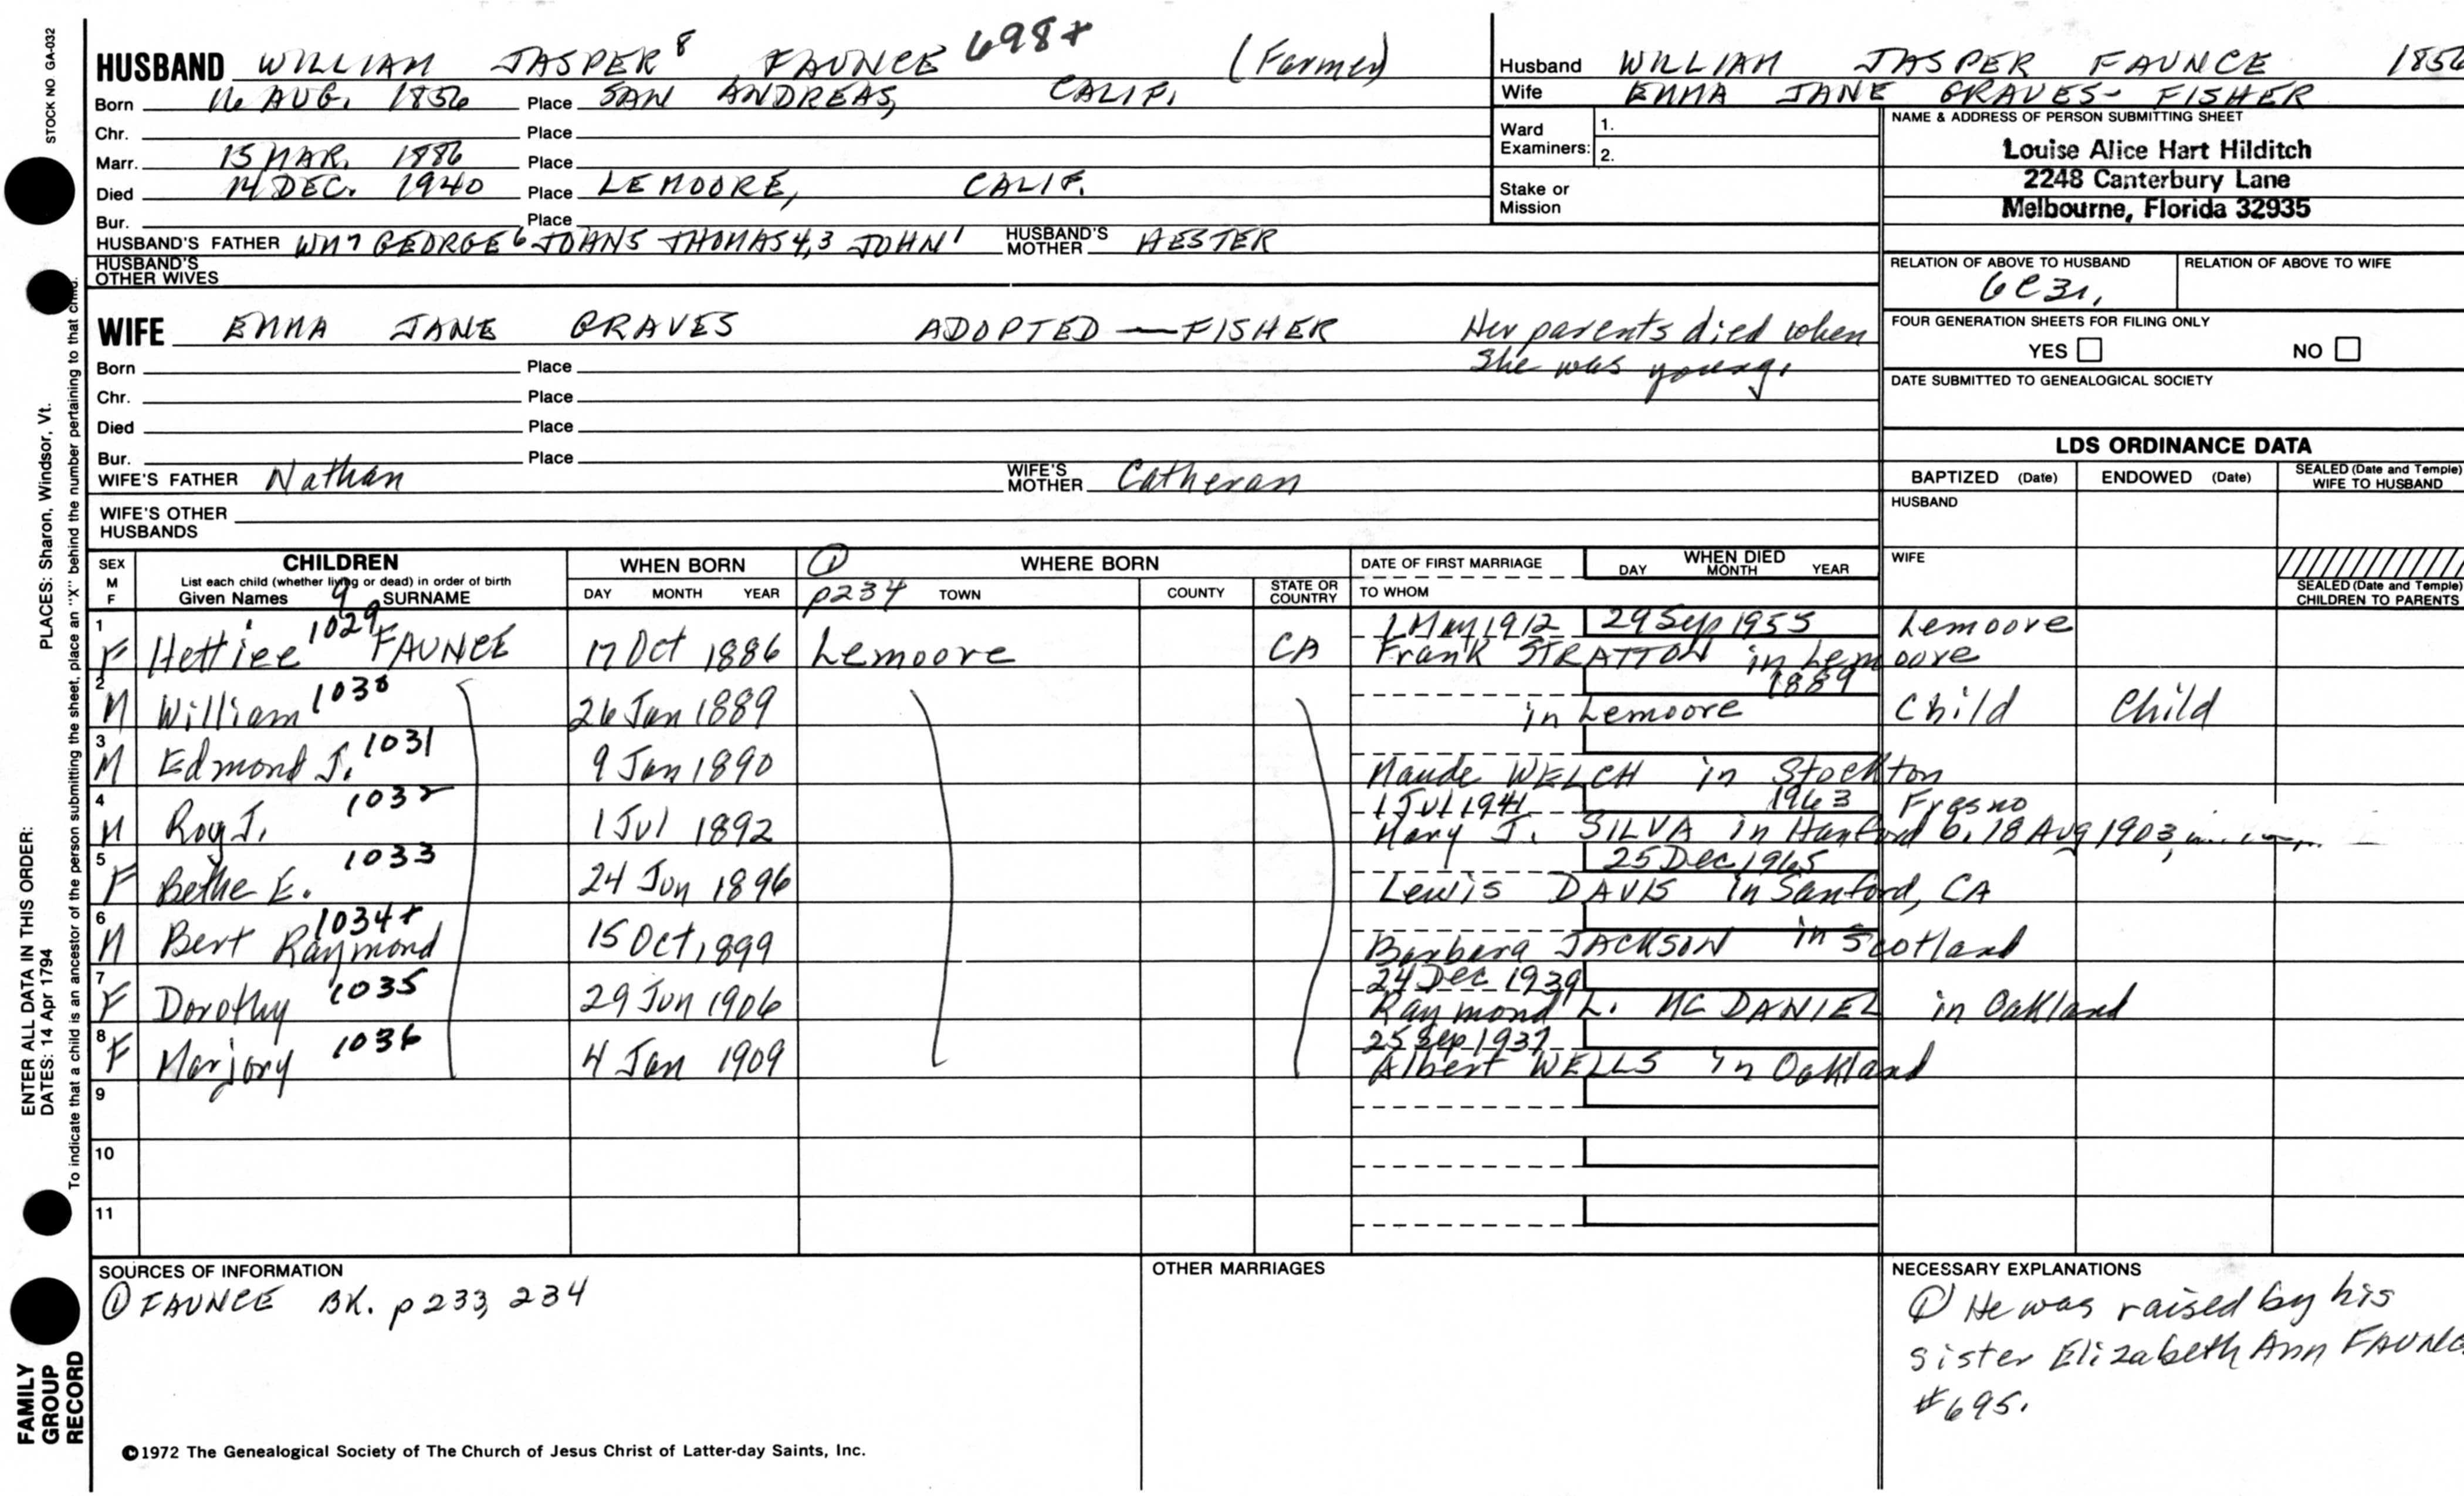 STOCK NO GA-032
HUSBAND WILLIAM JASPER 8 FAUNCE 698+ (Farmer)
Born 16 AUG. 1856 Place SAN ANDREAS, CALIF.
Chr. Place
Marr. 15 MAR. 1886 Place
Died 14 DEC. 1940 Place LEMOORE, CALIF.
Bur. Place
HUSBAND'S FATHER WM7 GEORGE6 JOHN5 THOMAS4,3 JOHN1 HUSBAND'S MOTHER HESTER
HUSBAND'S OTHER WIVES
Husband WILLIAM JASPER FAUNCE 1856
Wife EMMA JANE GRAVES- FISHER
Ward Examiners: 1.
2.
Stake or Mission
NAME & ADDRESS OF PERSON SUBMITTING SHEET
Louise Alice Hart Hilditch
2248 Canterbury Lane
Melbourne, Florida 32935
RELATION OF ABOVE TO HUSBAND RELATION OF ABOVE TO WIFE
6C3r,
FOUR GENERATION SHEETS FOR FILING ONLY
YES NO
DATE SUBMITTED TO GENEALOGICAL SOCIETY
WIFE EMMA JANE GRAVES ADOPTED — FISHER Her parents died when
she was young.
Born Place
Chr. Place
Died Place
Bur. Place
WIFE'S FATHER Nathan WIFE'S MOTHER Catheran
WIFE'S OTHER HUSBANDS
LDS ORDINANCE DATA
BAPTIZED (Date) ENDOWED (Date) SEALED (Date and Temple) WIFE TO HUSBAND
HUSBAND
WIFE
SEALED (Date and Temple) CHILDREN TO PARENTS
SEX M F CHILDREN WHEN BORN ① WHERE BORN DATE OF FIRST MARRIAGE WHEN DIED
List each child (whether living or dead) in order of birth
Given Names 9 SURNAME DAY MONTH YEAR p234 TOWN COUNTY STATE OR COUNTRY TO WHOM DAY MONTH YEAR
1 F Hettiee 1029 FAUNCE 17 Oct 1886 Lemoore CA 1 May 1912 29 Sep 1955 Lemoore
Frank STRATTON in Lemoore
2 M William 1030 26 Jan 1889 1889
in Lemoore Child Child
3 M Edmond J. 1031 9 Jan 1890
Maude WELCH in Stockton
4 M Roy J. 1032 1 Jul 1892 1 Jul 1941 1963 Fresno
Mary J. SILVA in Hanford b. 18 Aug 1903,
5 F Bethe E. 1033 24 Jun 1896 25 Dec 1965
Lewis DAVIS in Sanford, CA
6 M Bert Raymond 1034+ 15 Oct 1899
Barbara JACKSON in Scotland
7 F Dorothy 1035 29 Jun 1906 24 Dec 1939
Raymond L. MC DANIEL in Oakland
8 F Marjory 1036 4 Jan 1909 25 Sep 1937
Albert WELLS in Oakland
9
10
11
SOURCES OF INFORMATION
① FAUNCE BK. p 233, 234
OTHER MARRIAGES
NECESSARY EXPLANATIONS
① He was raised by his
sister Elizabeth Ann FAUNC
#695.
©1972 The Genealogical Society of The Church of Jesus Christ of Latter-day Saints, Inc.
FAMILY
GROUP
RECORD
ENTER ALL DATA IN THIS ORDER:
DATES: 14 Apr 1794 PLACES: Sharon, Windsor, Vt.
To indicate that a child is an ancestor of the person submitting the sheet, place an "X" behind the number pertaining to that child.